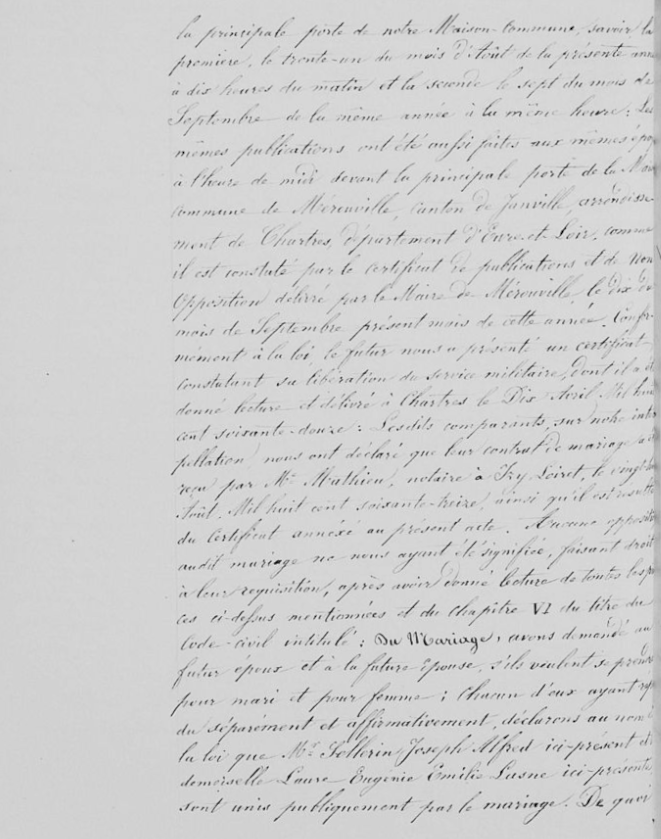 la principale porte de notre Maison-Commune, savoir la
première, le trente-un du mois d'Août de la présente
à dix heures du matin et la seconde le sept du mois de
Septembre de la même année à la même heure; Les
mêmes publications ont été aussi faites aux mêmes
à l'heure de midi devant la principale porte de la
commune de Mérouville, canton de Janville, arrondisse-
ment de Chartres, département d'Eure-et-Loir, comme
il est constaté par le certificat de publications et de non
Opposition délivré par le Maire de Mérouville le dix du
mois de Septembre présent mois de cette année. Confor-
mément à la loi, le futur nous a présenté un certificat
constatant sa libération du service militaire, dont il a
donné lecture et délivré à Chartres le Dix Avril Mil huit
cent soixante-douze: Lesdits comparants, sur notre inter
pellation, nous ont déclaré que leur contrat de mariage a
reçu par Me Mathieu, notaire à Loiret, le
Août, Mil huit cent soixante-treize, ainsi qu'il est
du certificat annexé au présent acte. Aucune
audit mariage ne nous ayant été signifiée, faisant droit
à leur requisition, après avoir donné lecture de toutes les
ces ci-dessus mentionnées et du Chapitre VI du titre du
Code-civil intitulé: Du Mariage, avons demandé au
futur époux et à la future épouse, s'ils veulent se
pour mari et pour femme; Chacun d'eux ayant
du séparément et affirmativement, déclarons au nom
la loi que Mr Sellerin Joseph Alfred ici-présent et
demoiselle Laure Eugénie Emilie Lasne ici-présente
sont unis publiquement par le mariage. De quoi